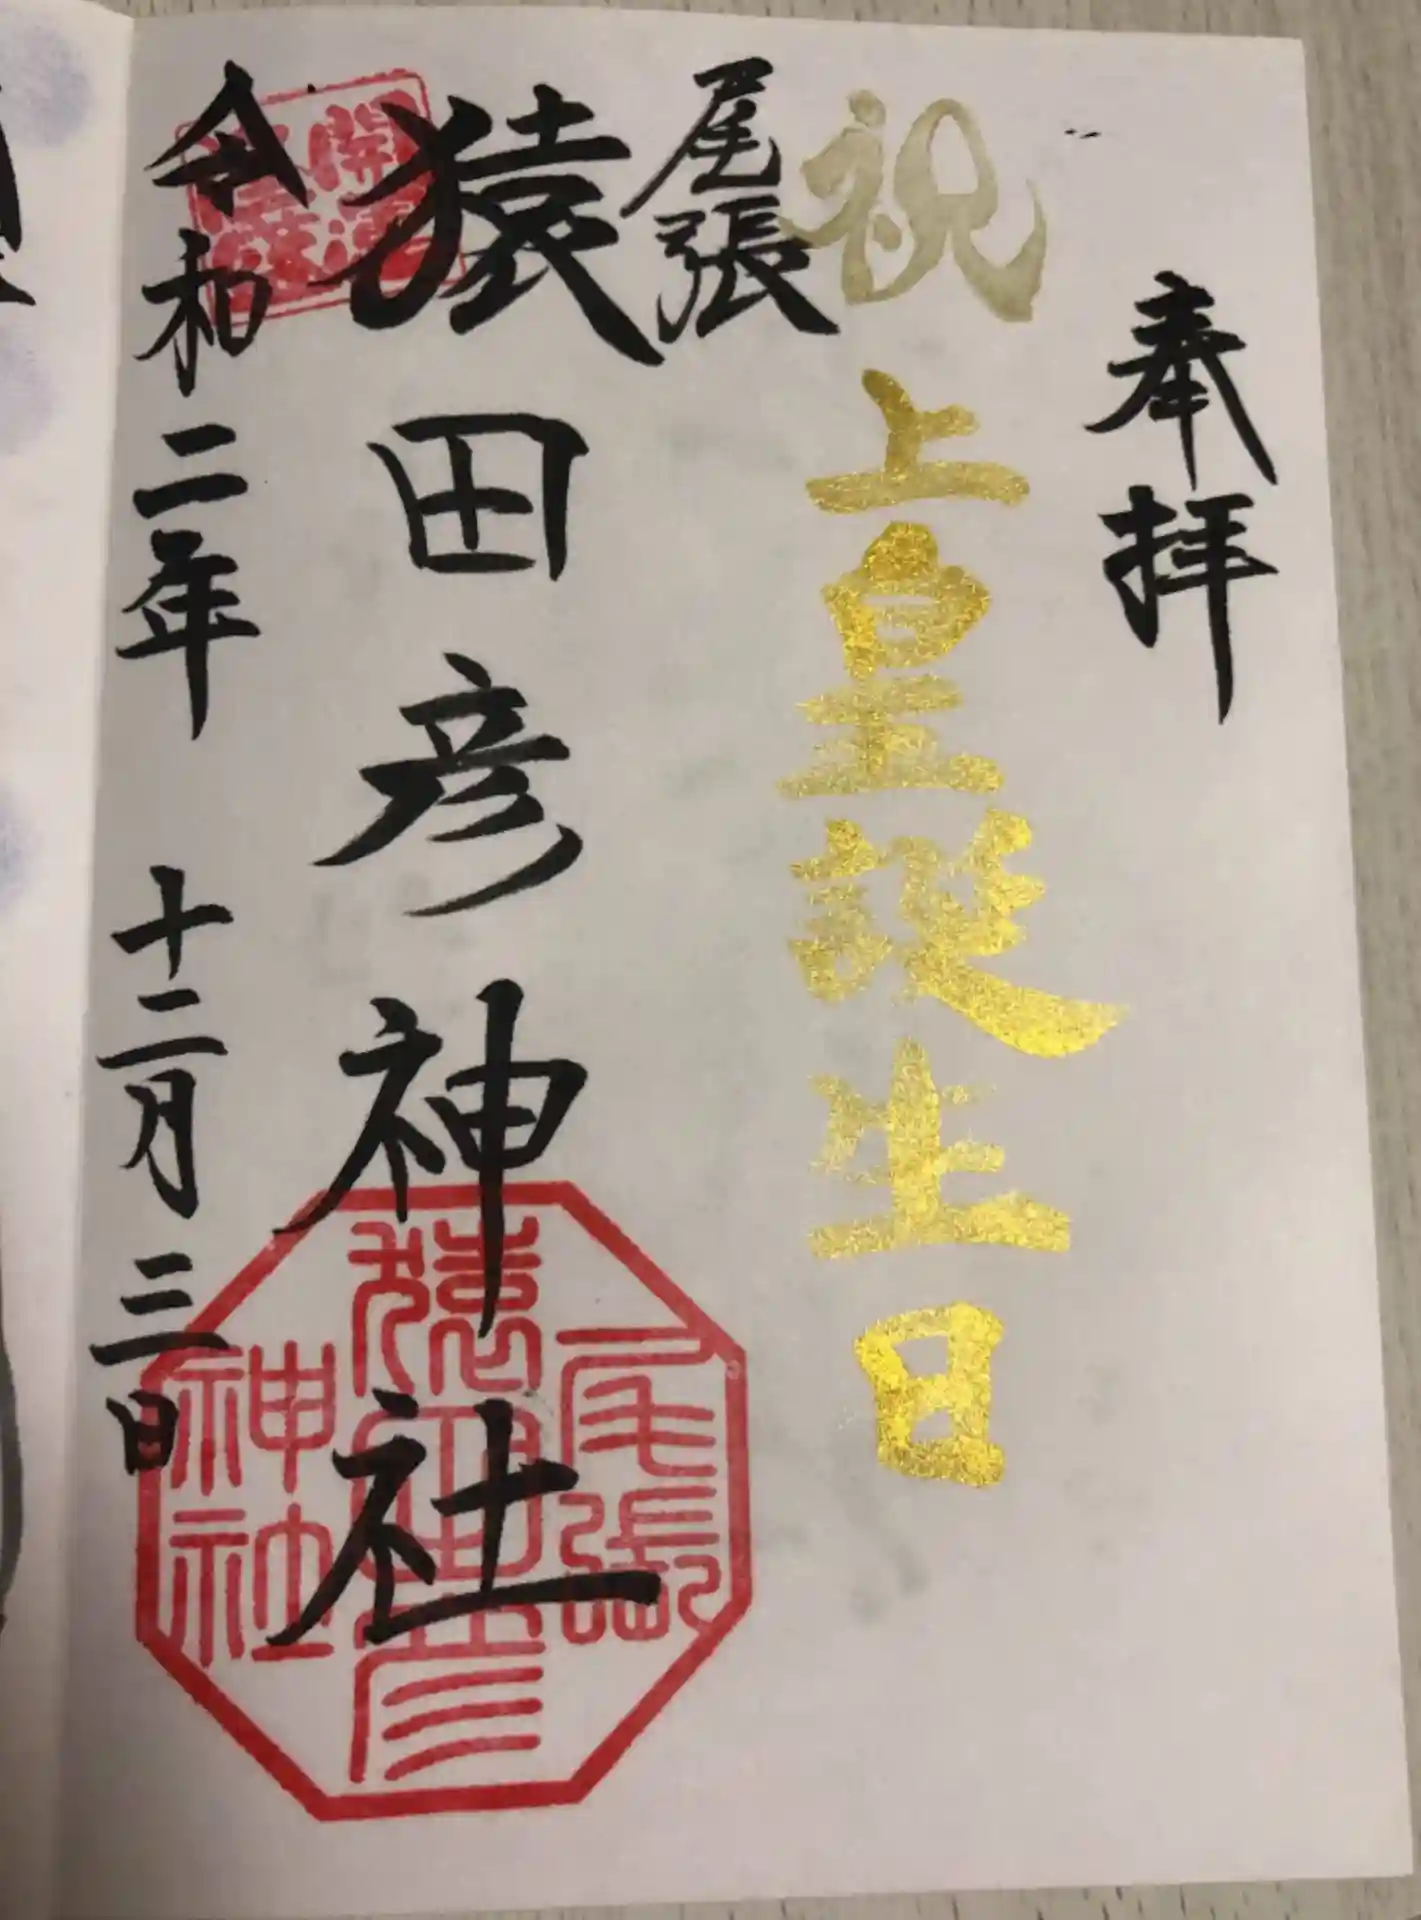 奉拝
祝 上皇誕生日
尾張
猿田彦神社
令和二年 十二月三日
尾張
猿田彦
神社